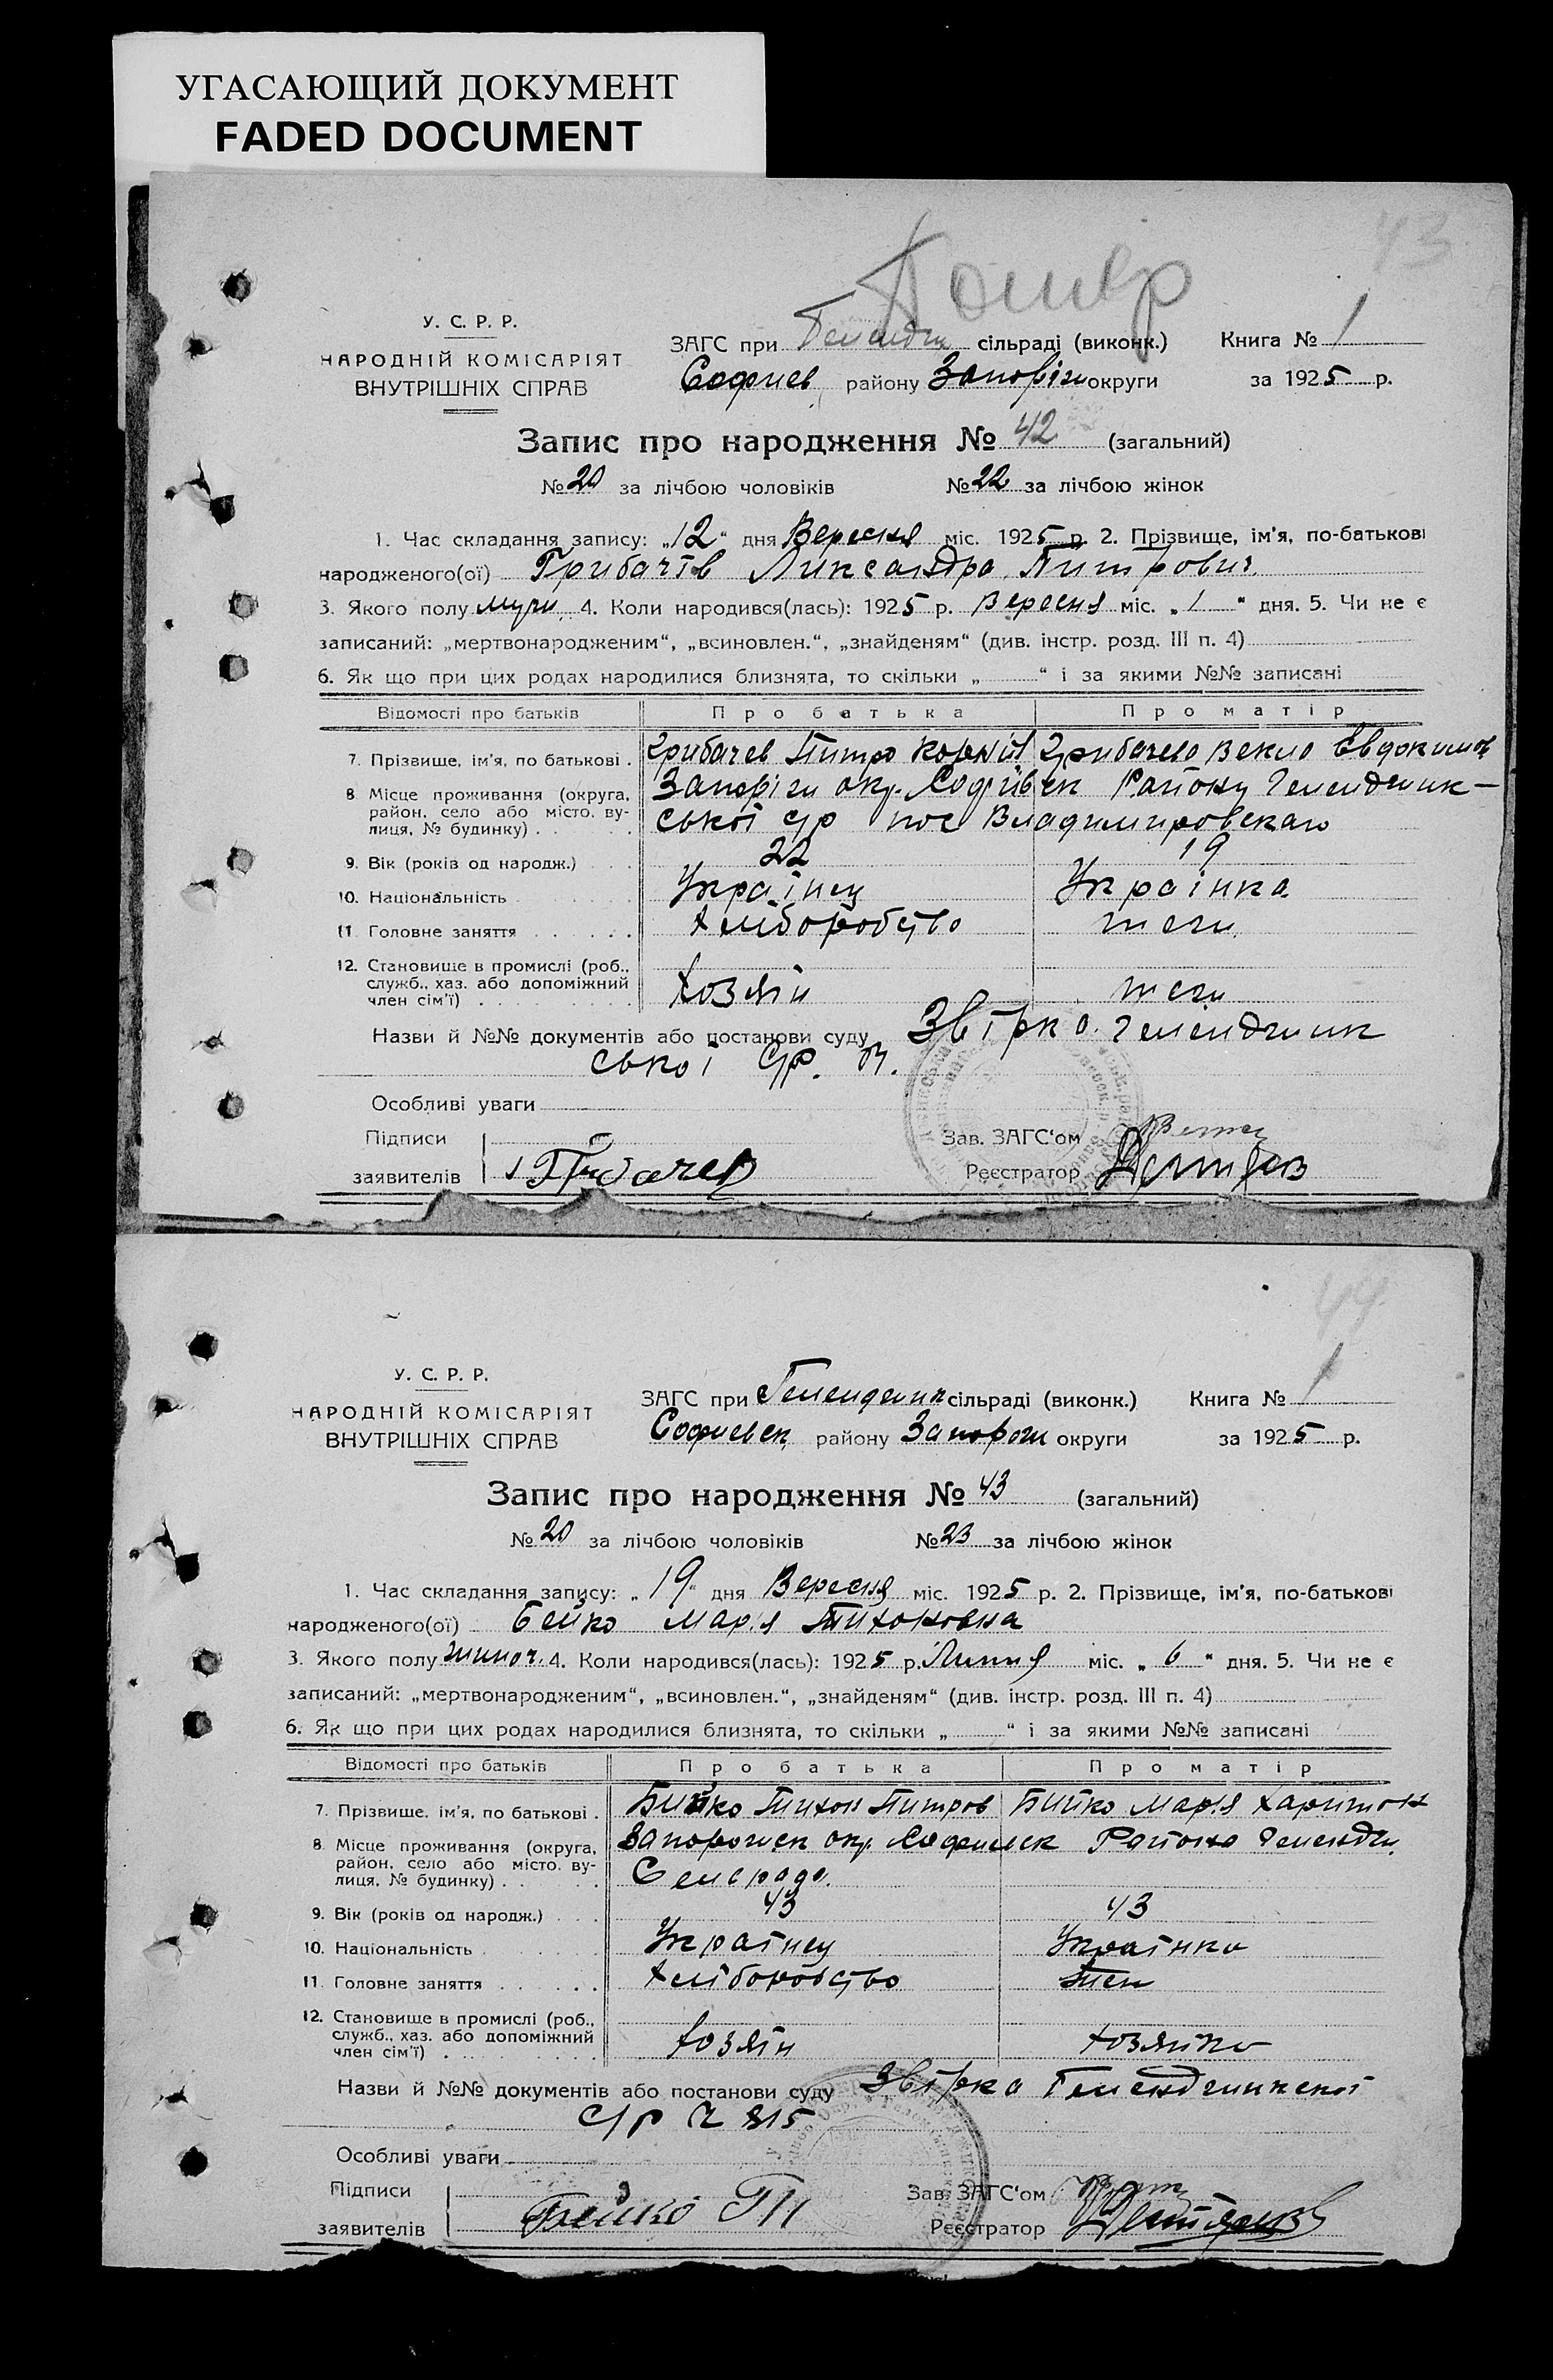 УГАСАЮЩИЙ ДОКУМЕНТ
FADED DOCUMENT
43
Помер
У. С. Р. Р.
НАРОДНІЙ КОМІСАРІЯТ
ВНУТРІШНІХ СПРАВ
ЗАГС при Гелендж сільраді (виконк.) Книга № 1
Софиев району Запоріж округи за 1925 р.
Запис про народження № 42 (загальний)
№ 20 за лічбою чоловіків № 22 за лічбою жінок
1. Час складання запису: „12“ дня Вересня міс. 1925 р. 2. Прізвище, ім'я, по-батькові
народженого(ої) Грибачів Ликсандра Питрович
3. Якого полу мужч. 4. Коли народився(лась): 1925 р. Вересня міс. „1“ дня. 5. Чи не є
записаний: „мертвонародженим“, „всиновлен.“, „знайденям“ (див. інстр. розд. III п. 4)
6. Як що при цих родах народилися близнята, то скільки „ “ і за якими №№ записані
Відомості про батьків Про батька Про матір
7. Прізвище, ім'я, по батькові . Грибачев Питро Корній Грибачева Векла Евдокимов
8. Місце проживання (округа, район, село або місто, вулиця, № будинку) . . Запоріж окр. Софіївск Району Геленджик-
ської с/р пос Владимировскаго
9. Вік (років од народж.) 22 19
10. Національність Українец Українка
11. Головне заняття Хліборобство теж
12. Становище в промислі (роб.,
служб., хаз. або допоміжний
член сім'ї) Хозяїн теж
Назви й №№ документів або постанови суду Звірка Геленджик
ської С/р.
Особливі уваги
Підписи
заявителів Грибачев
Зав. ЗАГС'ом
Реєстратор
44
У. С. Р. Р.
НАРОДНІЙ КОМІСАРІЯТ
ВНУТРІШНІХ СПРАВ
ЗАГС при Геленджик сільраді (виконк.) Книга № 1
Софиевск району Запорож округи за 1925 р.
Запис про народження № 43 (загальний)
№ 20 за лічбою чоловіків № 23 за лічбою жінок
1. Час складання запису: „19“ дня Вересня міс. 1925 р. 2. Прізвище, ім'я, по-батькові
народженого(ої) Бейко Марія Тихоновна
3. Якого полу жиноч. 4. Коли народився(лась): 1925 р. Липня міс. „6“ дня. 5. Чи не є
записаний: „мертвонародженим“, „всиновлен.“, „знайденям“ (див. інстр. розд. III п. 4)
6. Як що при цих родах народилися близнята, то скільки „ “ і за якими №№ записані
Відомості про батьків Про батька Про матір
7. Прізвище, ім'я, по батькові . Бийко Тихон Питров Бийко Марія Харитон
8. Місце проживання (округа, район, село або місто, вулиця, № будинку) . . Запорожск окр. Софиевск Района Гелендж.
Сельрада.
9. Вік (років од народж.) 43 43
10. Національність Українец Українка
11. Головне заняття Хліборобство теж
12. Становище в промислі (роб.,
служб., хаз. або допоміжний
член сім'ї) Хозяїн Хозяйка
Назви й №№ документів або постанови суду Звірка Геленджикскої
с/р 815
Особливі уваги
Підписи
заявителів Бейко ТП
Зав. ЗАГС'ом
Реєстратор